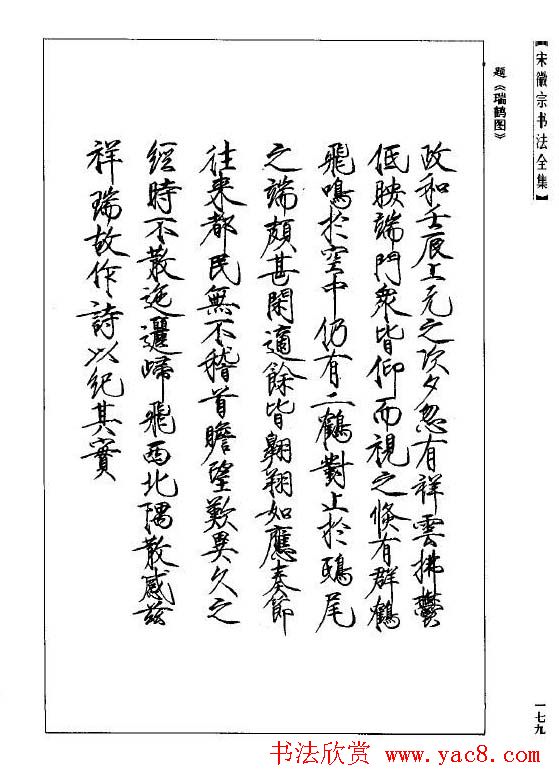 【宋徽宗书法全集】
题《瑞鹤图》
政和壬辰上元之次夕忽有祥雲拂鬱
低映端門衆皆仰而視之倏有群鶴
飛鳴於空中仍有二鶴對止於鴟尾
之端頗甚閑適餘皆翱翔如應奏節
往來都民無不稽首瞻望歎異久之
經時不散迤邐歸飛西北隅散感茲
祥瑞故作詩以紀其實
一七九
书法欣赏 www.yac8.com